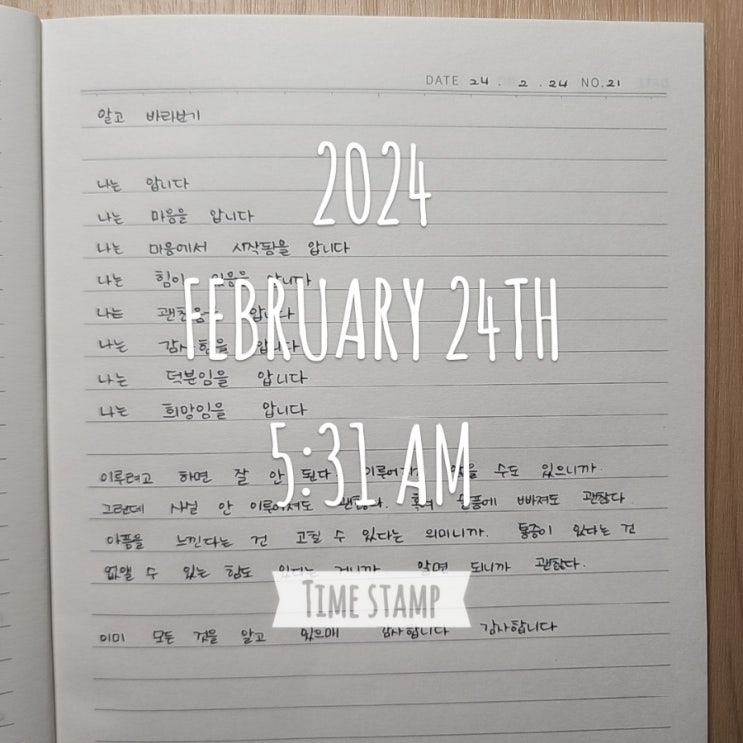 DATE 24 . 2 . 24 NO. 21
알고 바라보기
나는 압니다
나는 마음을 압니다
나는 마음에서 시작됨을 압니다
나는 힘이 있음을 압니다
나는 괜찮음 압니다
나는 감사함을 압니다
나는 덕분임을 압니다
나는 희망임을 압니다
이루려고 하면 잘 안 된다 않을 수도 있으니까.
그런데 사실 안 이루어져도 괜찮다. 혹여 슬픔에 빠져도 괜찮다.
아픔을 느낀다는 건 고칠 수 있다는 의미니까. 통증이 왔다는 건
없앨 수 있는 힘도 있다는 거니까. 알면 되니까 괜찮다.
이미 모든 것을 알고 있으매 감사합니다 감사합니다
2024
FEBRUARY 24TH
5:31 AM
TIME STAMP